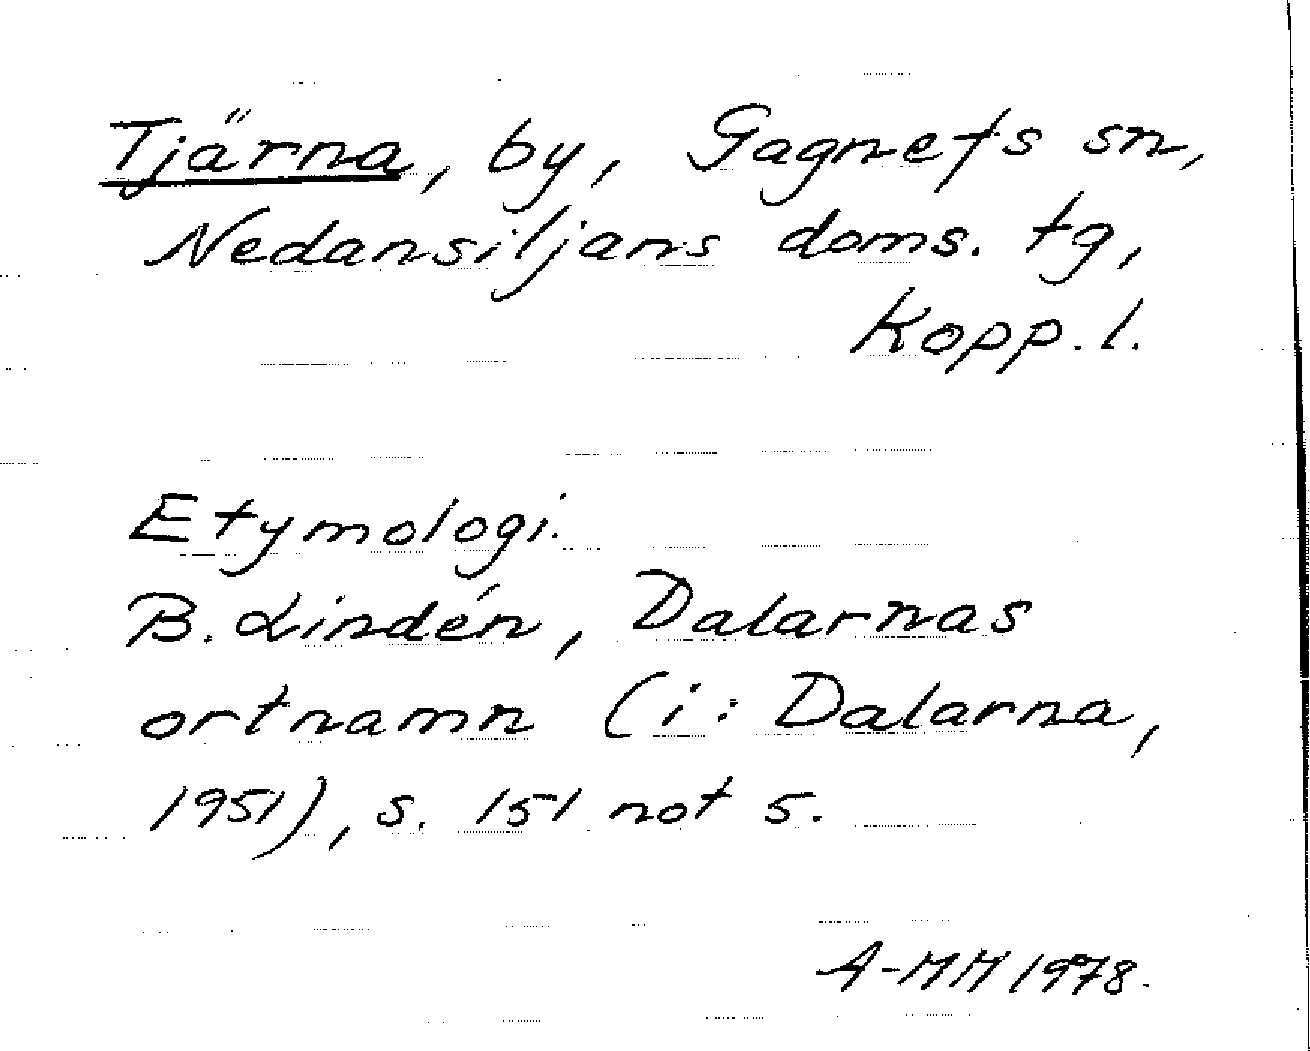 Tjärna, by, Gagnefs sn,
Nedansiljans doms. tg,
Kopp. l.
Etymologi.
B. Lindén, Dalarnas
ortnamn (i: Dalarna,
1951), s. 151 not 5.
A-MH 1978.